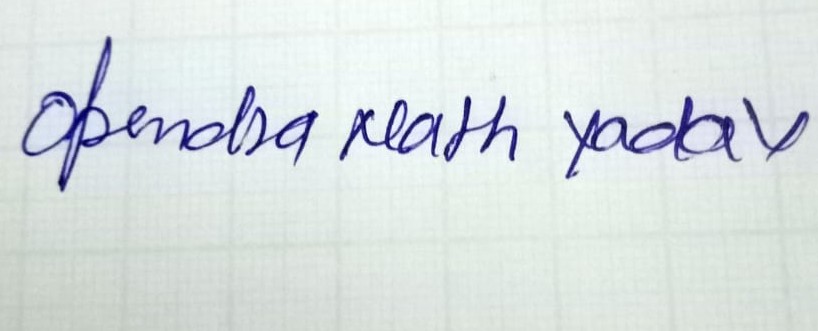 Opendra Nath Yadav